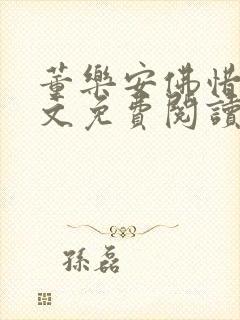 董樂安佛惜
文免費閱讀
孫磊